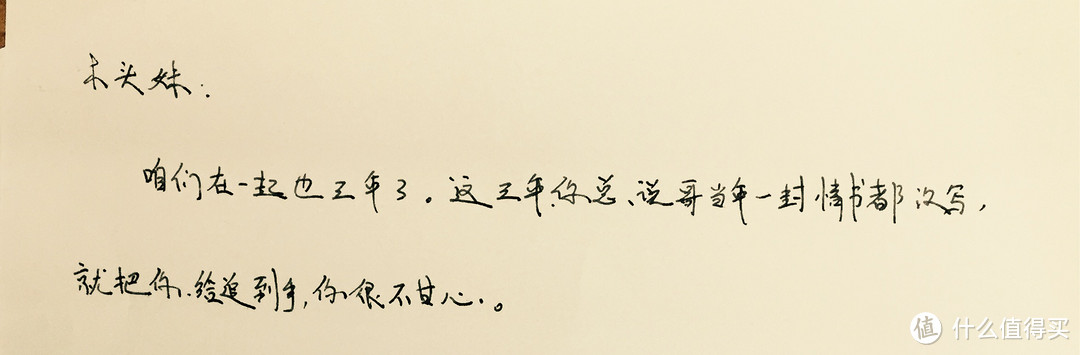 木头妹：
咱们在一起也三年了。这三年你总说哥当年一封情书都没写，
就把你给追到手，你很不甘心。
值 什么值得买